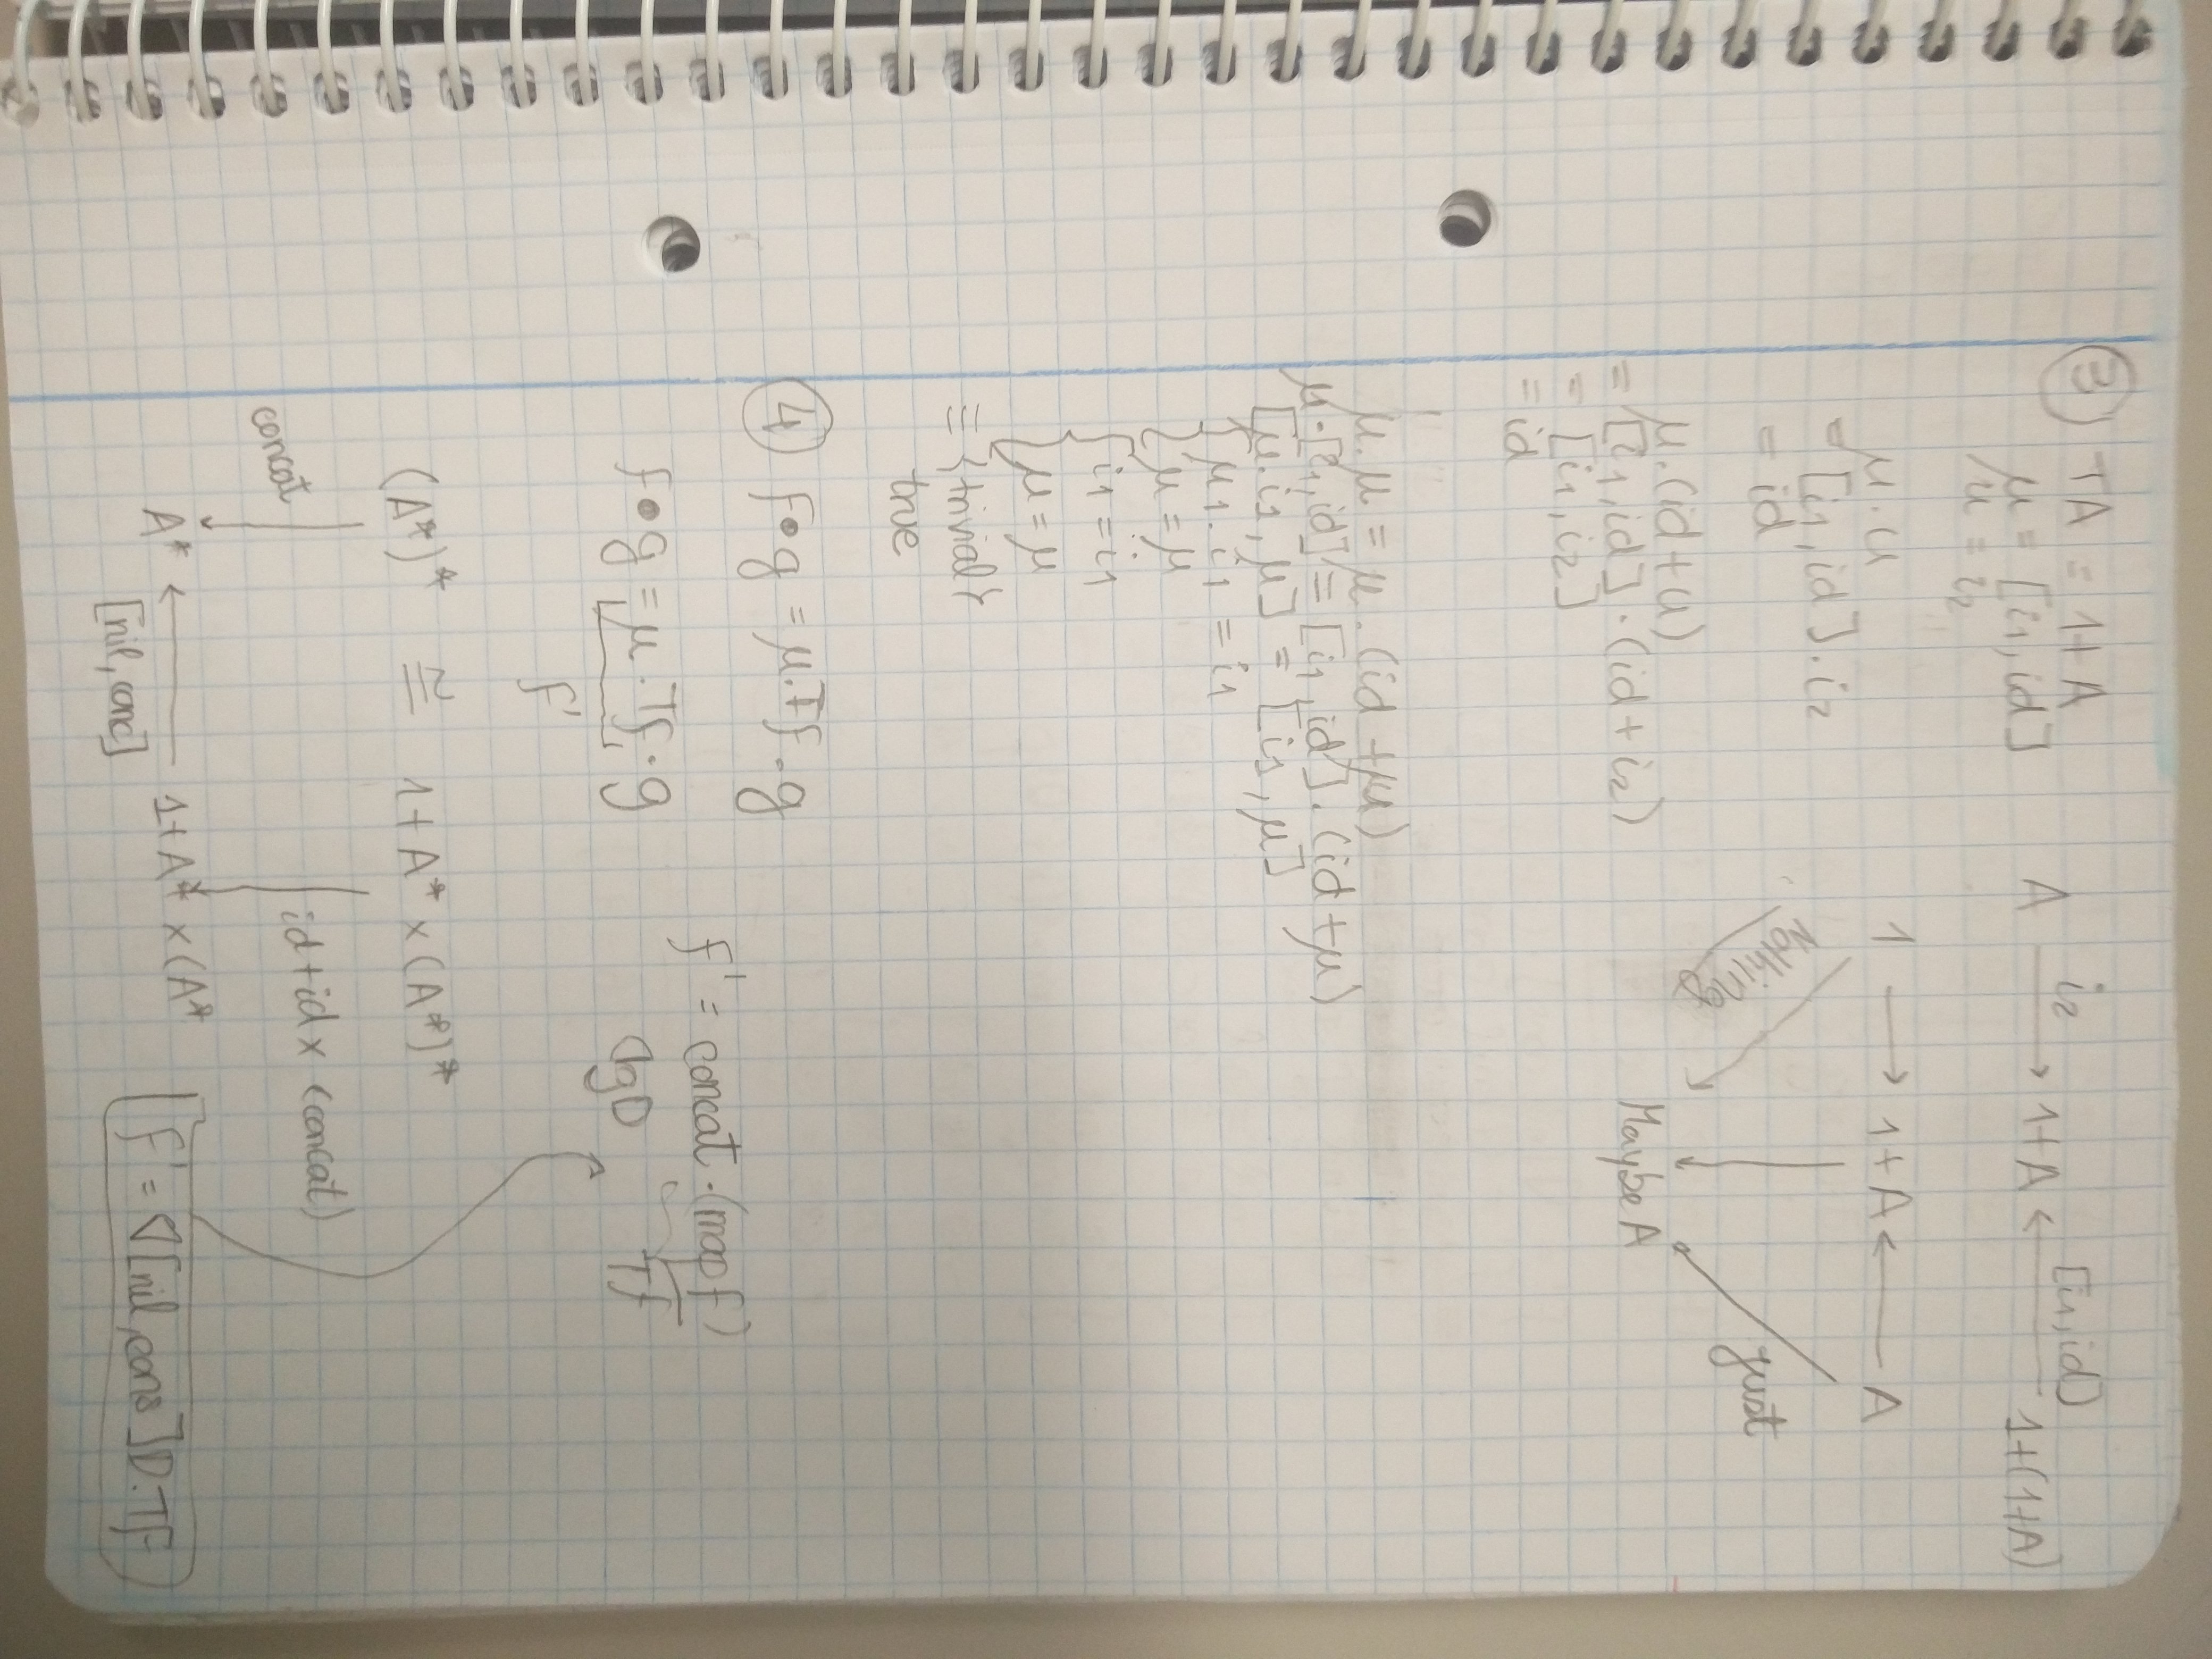 ③ TA = 1+A
μ = [i₁, id]
u = i₂
A →(i₂) 1+A ←([i₁, id]) 1+(1+A)
μ.u
= [i₁, id].i₂
= id
1 → 1+A ← A
Nothing
just
Maybe A
μ.(id+u)
= [i₁, id].(id+i₂)
= [i₁, i₂]
= id
μ.μ = μ.(id+μ)
μ.[i₁, id] = [i₁, id].(id+μ)
[μ.i₁, μ] = [i₁, μ]
{ μ₁.i₁ = i₁
{ μ = μ
{ i₁ = i₁
{ μ = μ
≡ {trivial}
true
④ f•g = μ.Tf.g
f•g = μ.Tf.g
f'
f' = concat.(map f)
⦇g⦈
Tf
(A*)* ≅ 1+A* × (A*)*
concat
id+id × (concat)
A* ← 1+A* × (A*
[nil, conc]
f' = ⦇[nil, cons]⦈.Tf